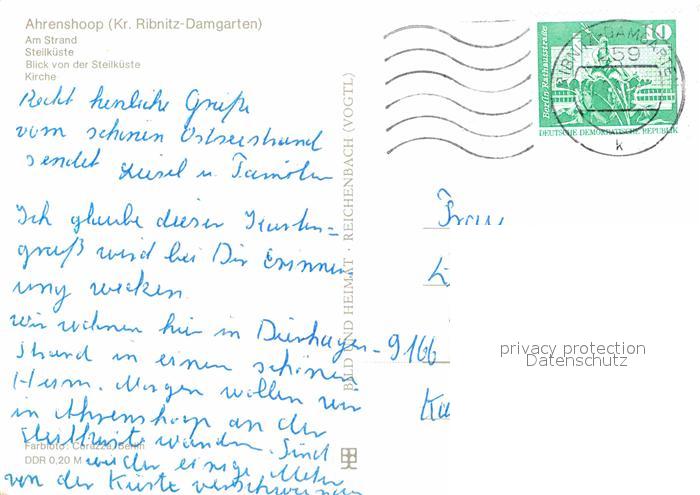 Ahrenshoop (Kr. Ribnitz-Damgarten)
Am Strand
Steilküste
Blick von der Steilküste
Kirche
Recht herzliche Grüße
vom schönen Ostseestrand
sendet Liesel u. Familie
Ich glaube dieser Karten=
gruß wird bei Dir Erinner
ung wecken.
Wir wohnen hier in Dierhagen-
Strand in einem schönen
Heim. Morgen wollen wir
in Ahrenshoop an der
Steilküste wandern. Sind
wieder einige Meter
von der Küste verschwunden
Farbfoto: Corazza, Berlin
DDR 0,20 M
BILD UND HEIMAT · REICHENBACH (VOGTL)
Berlin Rathausstraße
10
DEUTSCHE DEMOKRATISCHE REPUBLIK
RIBNITZ-DAMGARTEN
259
k
Frau
9166
privacy protection
Datenschutz